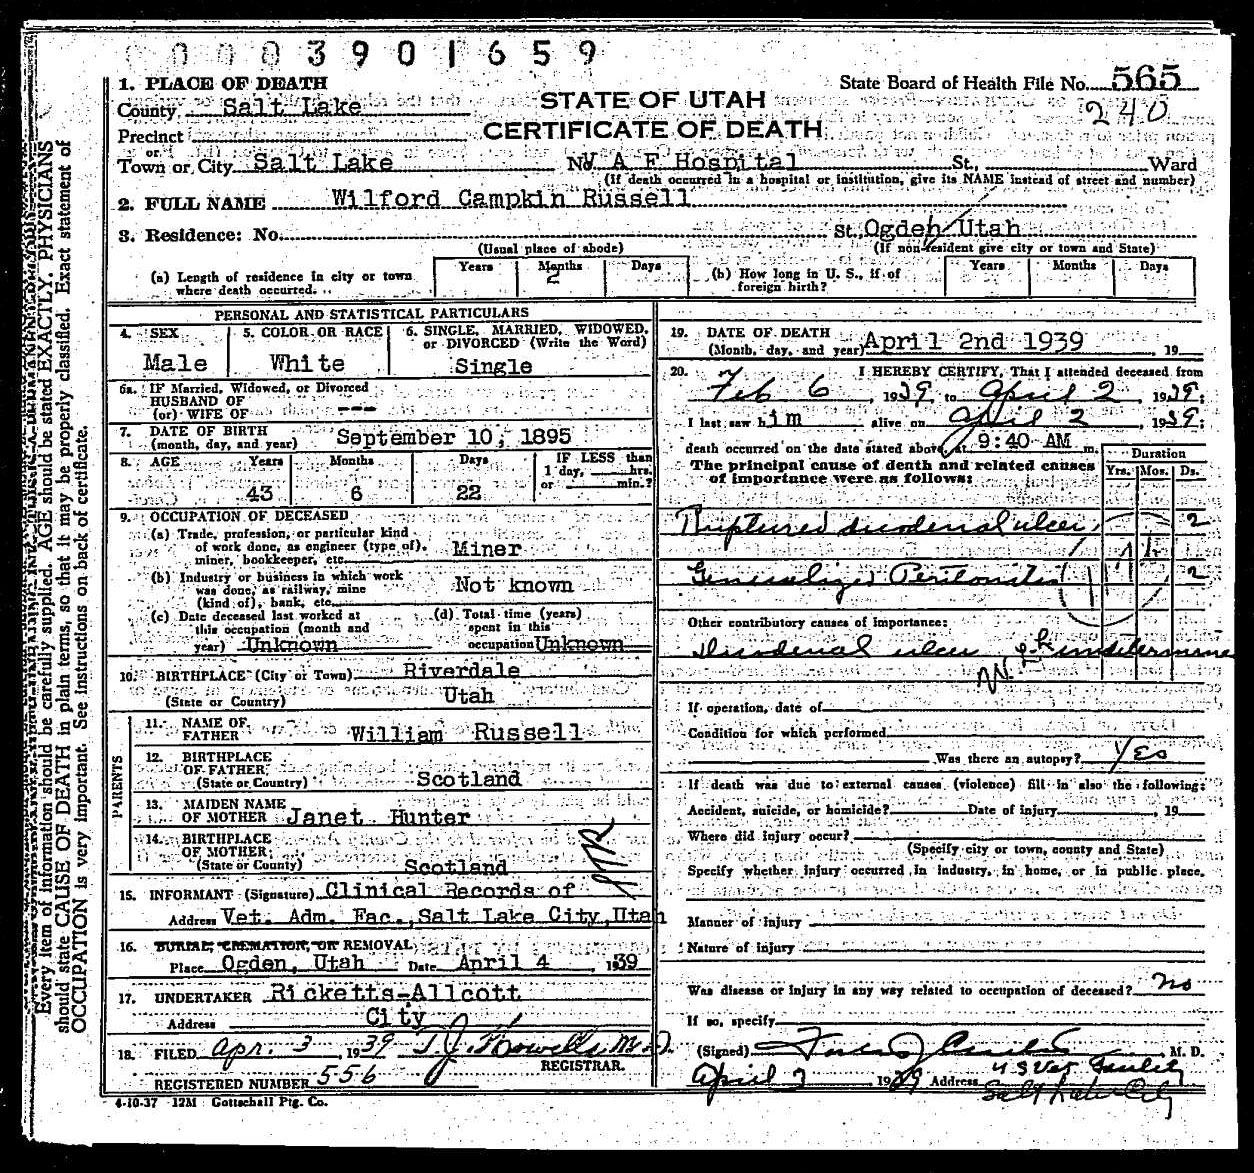 0 0 0 0 3 9 0 1 6 5 9
1. PLACE OF DEATH
State Board of Health File No. 565
240
County Salt Lake
STATE OF UTAH
CERTIFICATE OF DEATH
Precinct
or
Town or City Salt Lake No. V A F Hospital St. Ward
(If death occurred in a hospital or institution, give its NAME instead of street and number)
2. FULL NAME Wilford Campkin Russell
3. Residence: No. St. Ogden Utah
(Usual place of abode) (If non-resident give city or town and State)
(a) Length of residence in city or town where death occurred. Years Months 2 Days
(b) How long in U. S., if of foreign birth? Years Months Days
PERSONAL AND STATISTICAL PARTICULARS
4. SEX Male
5. COLOR OR RACE White
6. SINGLE, MARRIED, WIDOWED, or DIVORCED (Write the Word) Single
6a. IF Married, Widowed, or Divorced
HUSBAND OF
(or) WIFE OF ---
7. DATE OF BIRTH
(month, day, and year) September 10, 1895
8. AGE Years 43 Months 6 Days 22 IF LESS than 1 day, hrs. or min.?
9. OCCUPATION OF DECEASED
(a) Trade, profession, or particular kind
of work done, as engineer (type of),
miner, bookkeeper, etc. Miner
(b) Industry or business in which work
was done, as railway, mine
(kind of), bank, etc. Not known
(c) Date deceased last worked at
this occupation (month and
year) Unknown
(d) Total time (years)
spent in this
occupation Unknown
10. BIRTHPLACE (City or Town) Riverdale
(State or Country) Utah
PARENTS
11. NAME OF FATHER William Russell
12. BIRTHPLACE OF FATHER,
(State or Country) Scotland
13. MAIDEN NAME OF MOTHER Janet Hunter
14. BIRTHPLACE OF MOTHER,
(State or County) Scotland
15. INFORMANT (Signature) Clinical Records of
Address Vet. Adm. Fac., Salt Lake City, Utah
16. BURIAL, CREMATION, OR REMOVAL
Place Ogden, Utah Date April 4, 1939
17. UNDERTAKER Ricketts-Allcott
Address City
18. FILED Apr. 3 1939 T. J. Howells M.D.
REGISTRAR.
REGISTERED NUMBER 556
4-10-37 12M Gottschall Ptg. Co.
19. DATE OF DEATH
(Month, day, and year) April 2nd 1939, 19
20. I HEREBY CERTIFY, That I attended deceased from
Feb 6, 1939, to April 2, 1939;
I last saw him alive on April 2, 1939;
death occurred on the date stated above, at 9:40 AM m.
The principal cause of death and related causes
of importance were as follows:
Duration
Yrs. Mos. Ds.
Ruptured duodenal ulcer, 2
Generalized Peritonitis 2
117
Other contributory causes of importance:
Duodenal ulcer undetermine
If operation, date of
Condition for which performed
Was there an autopsy? Yes
If death was due to external causes (violence) fill in also the following:
Accident, suicide, or homicide? Date of injury , 19
Where did injury occur?
(Specify city or town, county and State)
Specify whether injury occurred in industry, in home, or in public place.
Manner of injury
Nature of injury
Was disease or injury in any way related to occupation of deceased? No
If so, specify
(Signed) M. D.
April 3, 1939 Address U S Vet Facility
Salt Lake City
Every item of information should be carefully supplied. AGE should be stated EXACTLY. PHYSICIANS
should state CAUSE OF DEATH in plain terms, so that it may be properly classified. Exact statement of
OCCUPATION is very important. See instructions on back of certificate.